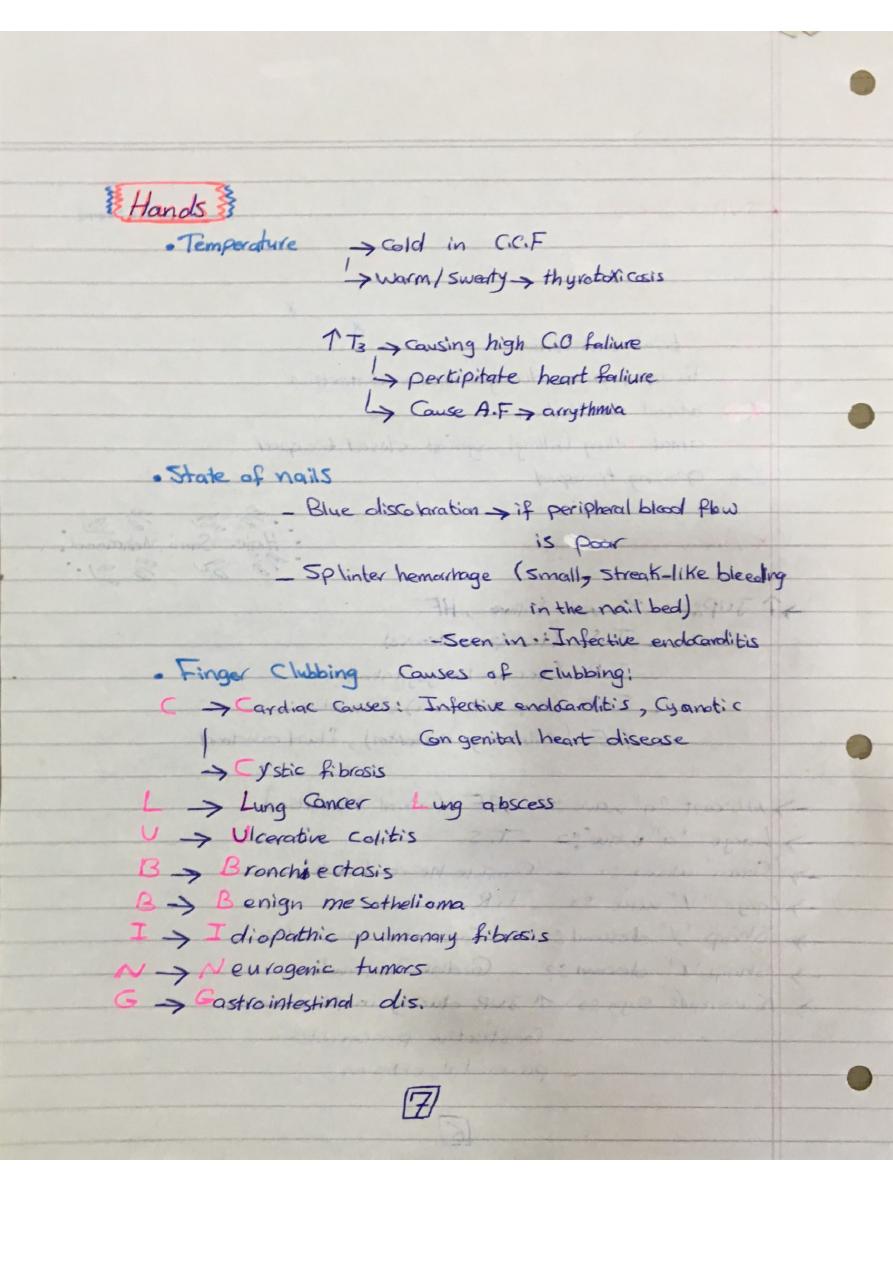 Hands
• Temperature → Cold in C.C.F
↳ warm/sweaty → thyrotoxicosis
↑ T3 → causing high C.O faliure
↳ pertipitate heart faliure
↳ Cause A.F → arrythmia
• State of nails
- Blue discoloration → if peripheral blood flow
is poor
- Splinter hemorrhage (small, streak-like bleeding
in the nail bed)
- Seen in :- Infective endocarditis
• Finger Clubbing Causes of clubbing:
C → Cardiac causes: Infective endocarditis, Cyanotic
Congenital heart disease
→ Cystic fibrosis
L → Lung Cancer Lung abscess
U → Ulcerative colitis
B → Bronchiectasis
B → Benign mesothelioma
I → Idiopathic pulmonary fibrosis
N → Neurogenic tumors
G → Gastrointestinal dis.
7